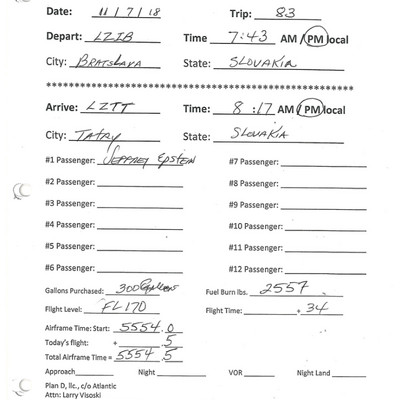 Date: 11/7/18 Trip: 83
Depart: LZIB Time 7:43 AM / PM local
City: Bratslava State: SLOVAKIA
************************************************
Arrive: LZTT Time: 8:17 AM / PM local
City: TATRY State: SLOVAKIA
#1 Passenger: JEFFREY EPSTEIN #7 Passenger:
#2 Passenger: #8 Passenger:
#3 Passenger: #9 Passenger:
#4 Passenger: #10 Passenger:
#5 Passenger: #11 Passenger:
#6 Passenger: #12 Passenger:
Gallons Purchased: 300 Gallons Fuel Burn lbs. 2557
Flight Level: FL170 Flight Time: . 34
Airframe Time: Start: 5554.0
Today's flight: + .5
Total Airframe Time = 5554.5
Approach Night VOR Night Land
Plan D, llc., c/o Atlantic
Attn: Larry Visoski